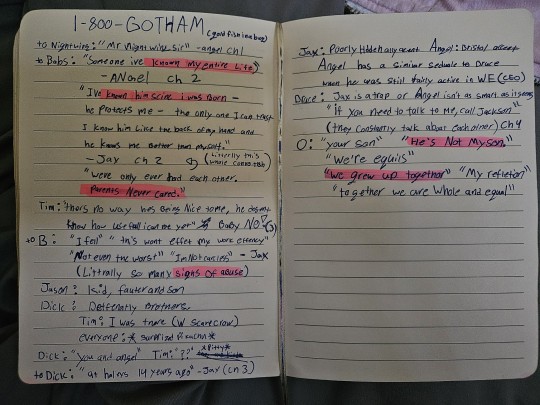 1-800-GOTHAM (goldfish in a bag)
to Nightwing: "Mr Nightwing Sir" -angel ch1
to Babs: "Someone ive known my entire life"
- ANgel ch 2
"I've known him scine I was Born -
he protects me - the only one I can trust
I know him like the back of my hand and
he knows me Better than myself."
- Jay ch 2 (Litterally this whole convo tBh)
"were only ever had each other.
Parents Never cared."
Tim: thers no way hes Being Nice to me, he doesnt
know how usefull I can me yer" Baby NO!
to B: "I fell" "tn's wont effet my work effency"
"Not even the worst" "Im Not carless" - Jax
(Littrally so many signs of abuse)
Jason: Kid, fauter and son
Dick: Deffenatly Brothers,
Tim: I was there (w scarecrow)
everyone: *surprized Pikachu*
Dick: "you and angel" Tim: "??" *Pitty*
to Dick: "at halers 14 years ago" -Jay (ch 3)
Jax: Poorly Hiddeh accent Angel: Bristol accent
Angel has a similar sedule to Bruce
when he was still fairly active in WE (CEO)
Bruce: Jax is a trap or Angel isn't as smart as it seems
"if you need to talk to me, call Jackson"
(they constantly talk about eachother) Ch 4
O: "your son" "He's Not My son"
"We're equils"
"we grew up together" "My refletion"
"together we are whole and equal"